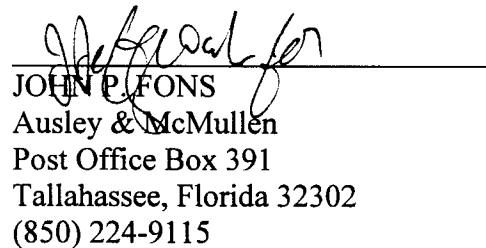 JOHN P. FONS
Ausley & McMullen
Post Office Box 391
Tallahassee, Florida 32302
(850) 224-9115